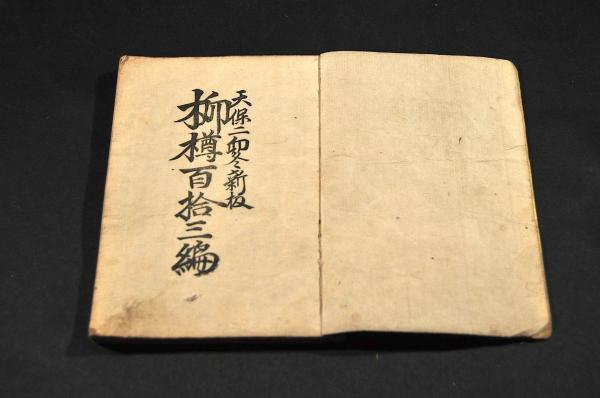 天保二卯冬新板
柳樽百拾三編